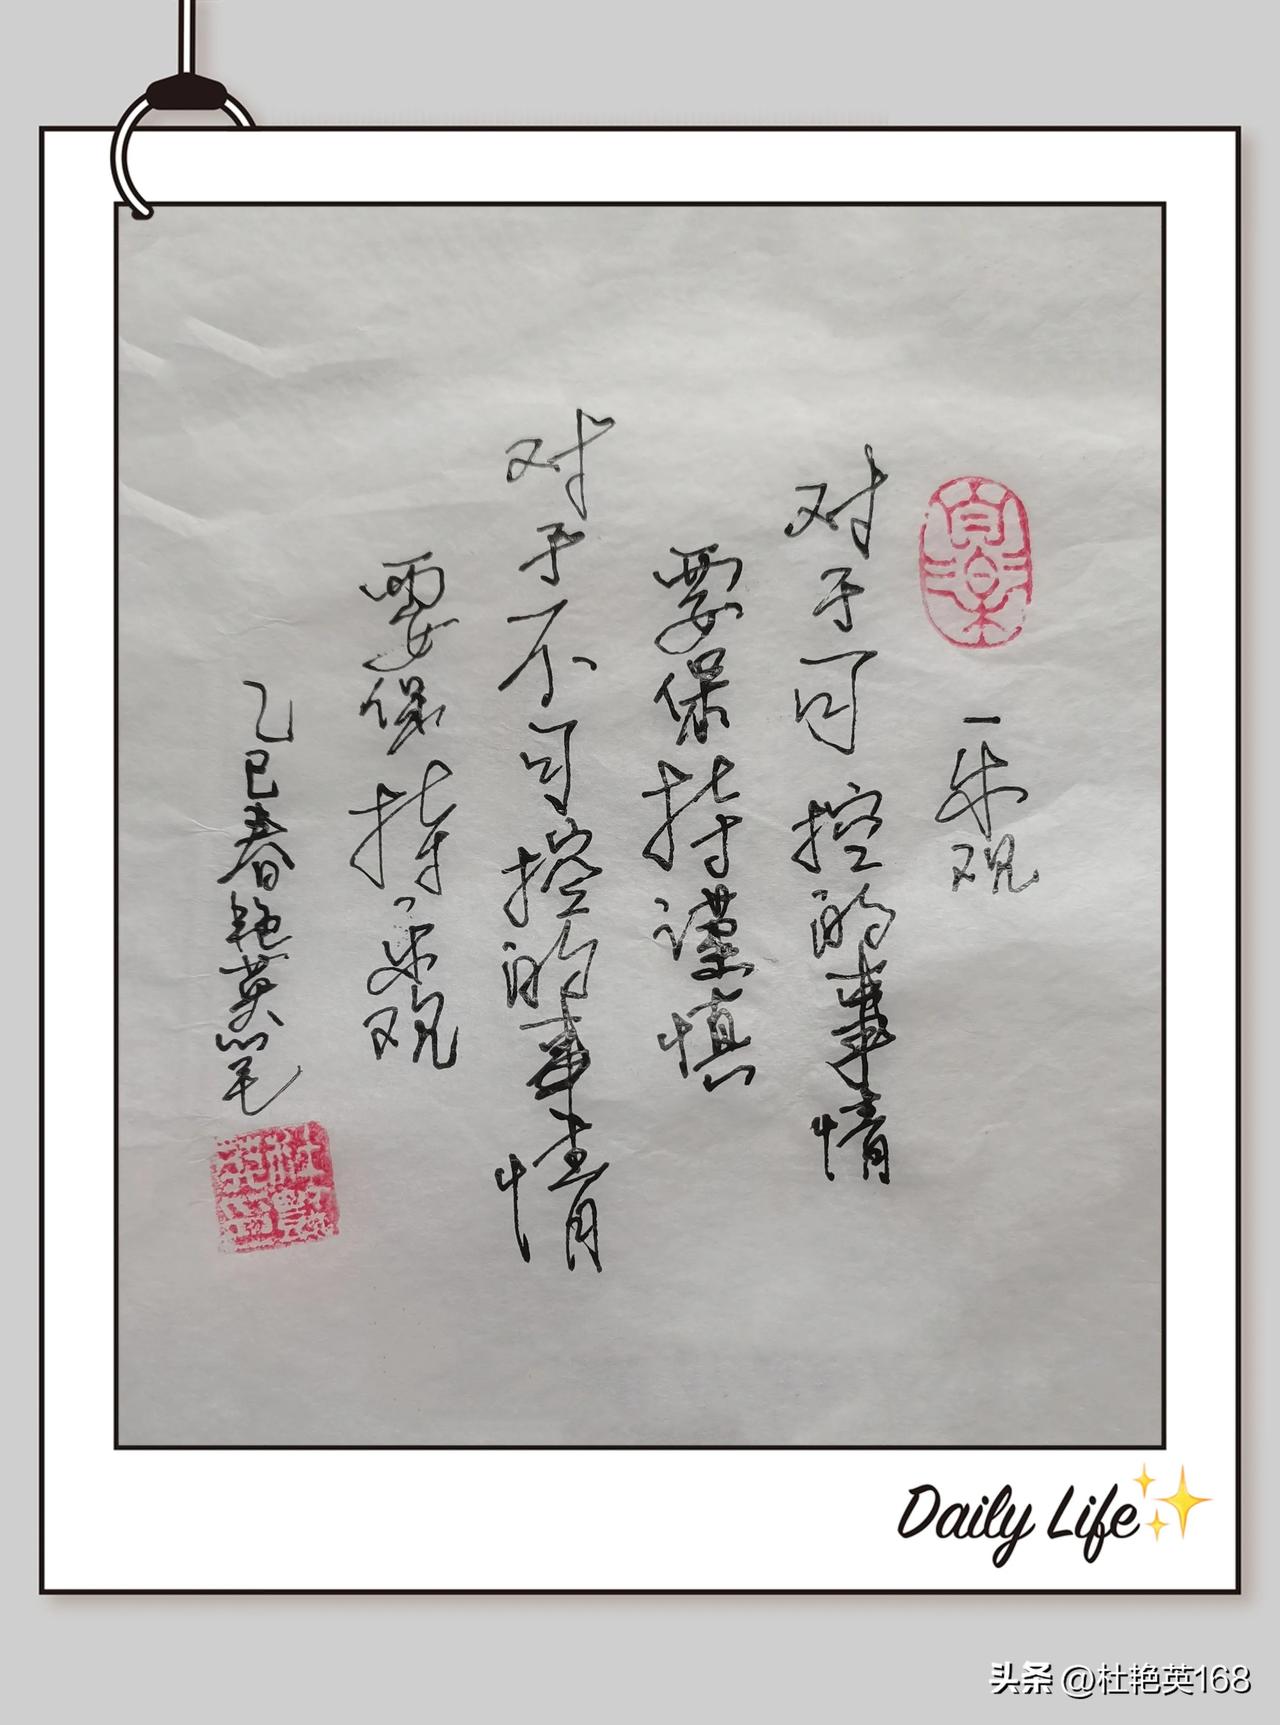 一乐观
对于可控的事情
要保持谨慎
对于不可控的事情
要保持乐观
乙巳春艳英笔
杜艷英印
Daily Life
头条 @杜艳英168